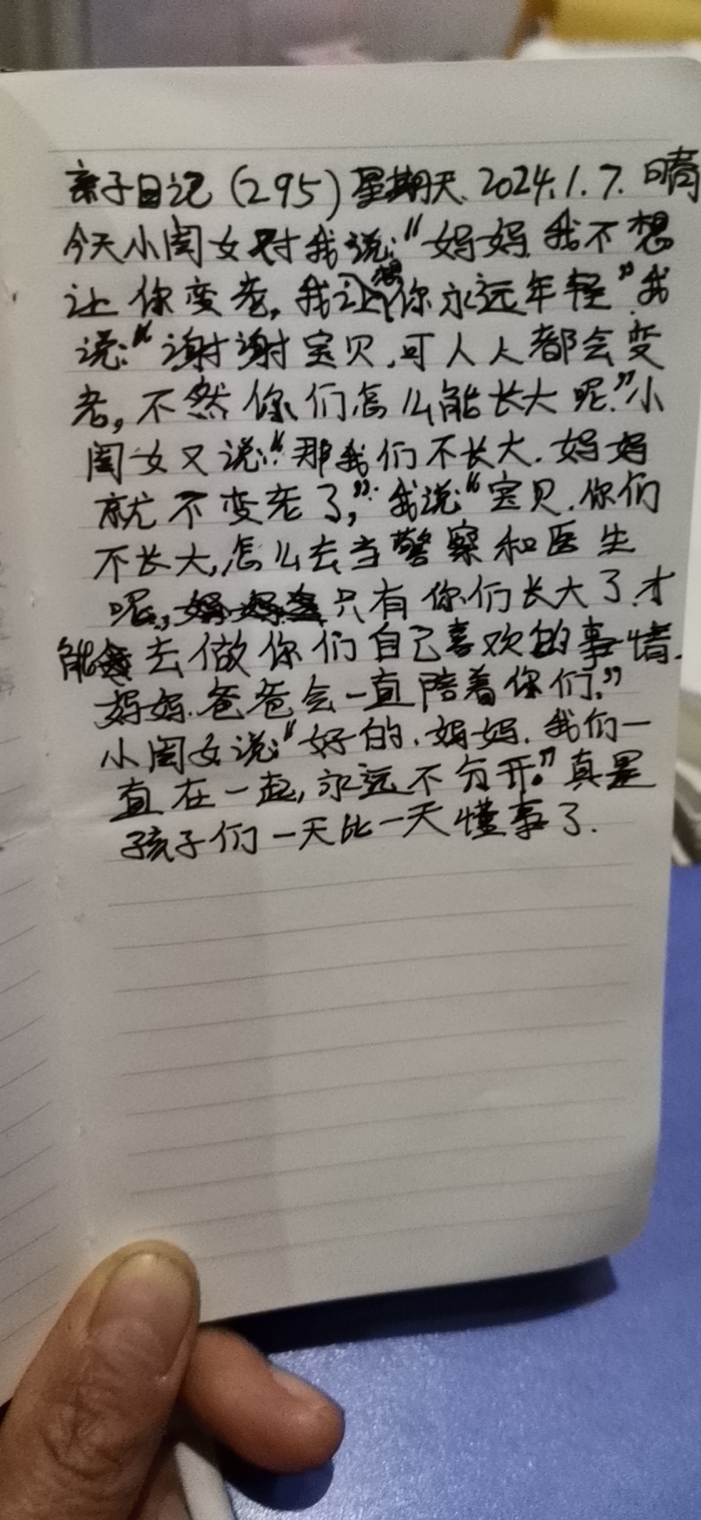 亲子日记（295）星期天.2024.1.7.晴
今天小闺女对我说:“妈妈.我不想
让你变老,我让你永远年轻”.我
说:“谢谢宝贝.可人人都会变
老,不然你们怎么能长大呢.”小
闺女又说:“那我们不长大.妈妈
就不变老了,”.我说“宝贝.你们
不长大,怎么去当警察和医生
呢,只有你们长大了.才
能去做你们自己喜欢的事情.
妈妈.爸爸会一直陪着你们.”
小闺女说“好的.妈妈.我们一
直在一起,永远不分开.”真是
孩子们一天比一天懂事了.